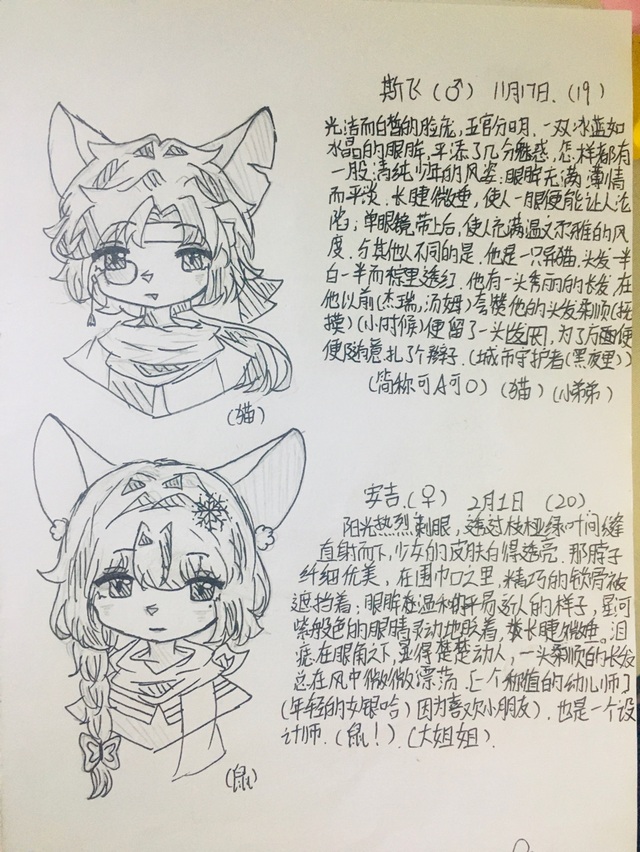 斯飞(♂) 11月17日.(19)
光洁而白皙的脸庞,五官分明.一双冰蓝如
水晶的眼眸,平添了几分魅惑,怎样都有
一股清纯少年的风姿;眼眸充满薄情
而平淡.长睫微垂,使人一眼便能让人沦
陷;单眼镜带上后,使人充满温文尔雅的风
度.与其他人不同的是,他是一只异猫,头发一半
白一半而棕里透红.他有一头秀丽的长发,在
他以前(杰瑞,汤姆)夸赞他的头发柔顺(抚
摸)(小时候)便留了一头长发,为了方便
便随意扎了个辫子.(城市守护者(黑夜里))
(简称可A可O)(猫)(小弟弟)
(猫)
安吉.(♀) 2月1日 (20)
阳光热烈刺眼,透过枝桠绿叶间缝
直射而下,少女的皮肤白得透亮.那脖子
纤细优美,在围巾口之里,精巧的锁骨被
遮挡着;眼眸是温和的平易近人的样子,星河
紫般色的眼睛灵动地眨着,长睫微垂.泪
痣在眼角之下,显得楚楚动人,一头柔顺的长发
总在风中微微漂荡.[一个称值的幼儿师]
(年轻的女眼哈)因为喜欢小朋友).也是一个设
计师.(鼠!).(大姐姐).
(鼠)